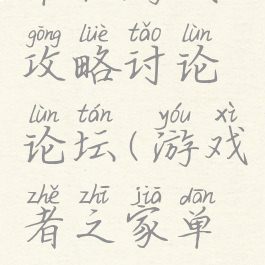 gōng lüè tǎo lùn
攻略讨论
lùn tán yóu xì
论坛(游戏
zhě zhī jiā dān
者之家单